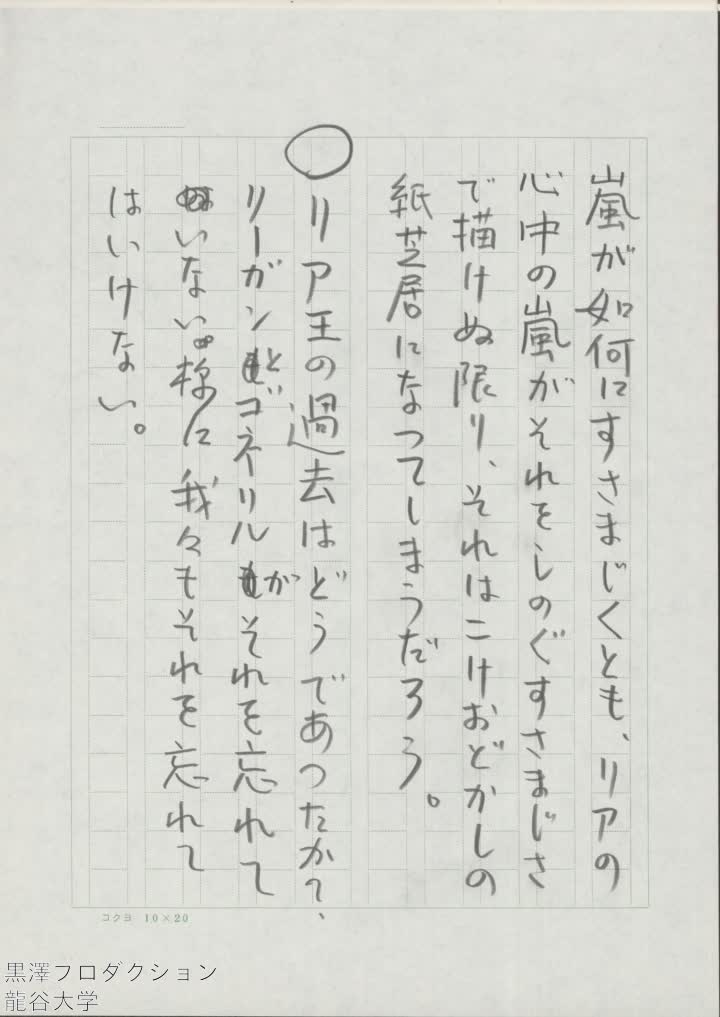 嵐が如何にすさまじくとも、リアの
心中の嵐がそれをしのぐすさまじさ
で描けぬ限り、それはこけおどかしの
紙芝居になつてしまうだろう。
○リア王の過去はどうであつたか?、
リーガンとゴネリルがそれを忘れて
いない。様に我々もそれを忘れて
はいけない。
コクヨ 10×20
黒澤プロダクション
龍谷大学